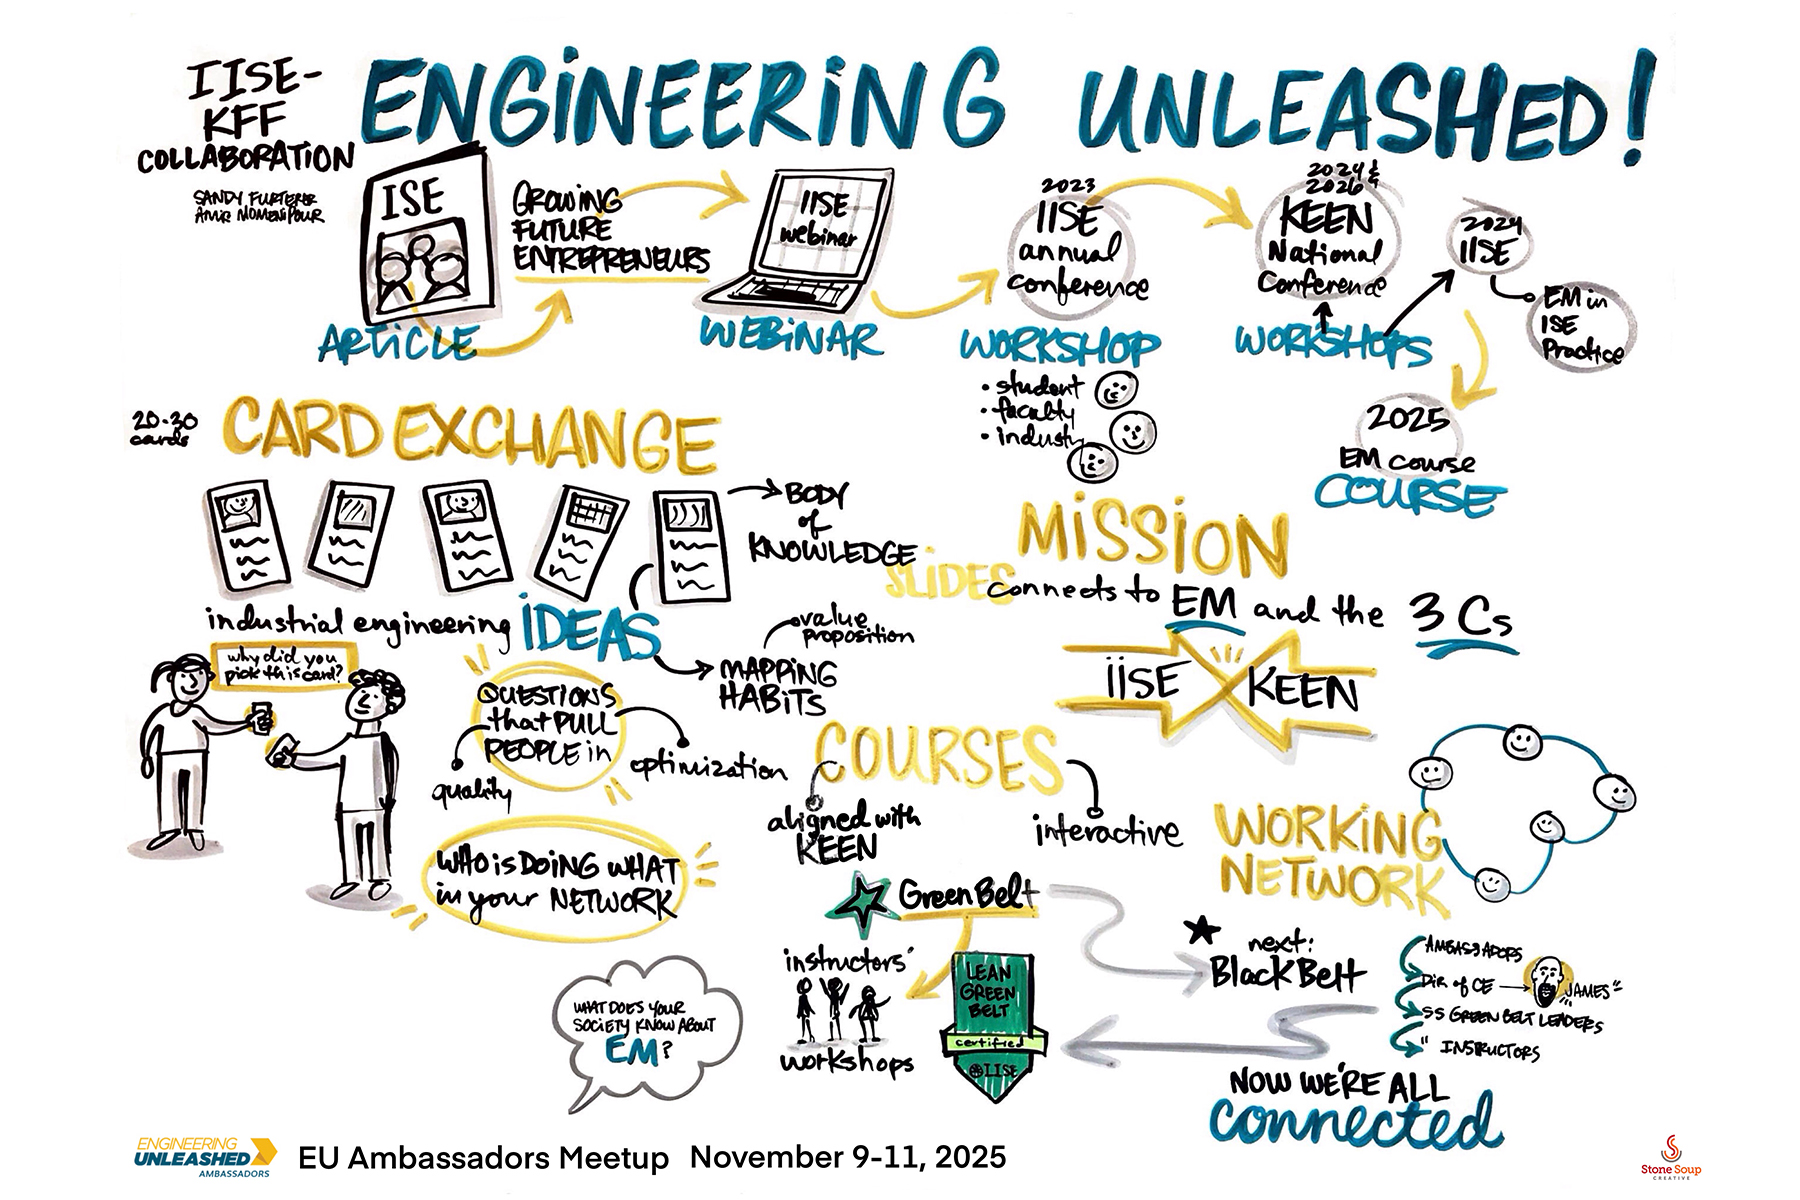 IISE-
KFF
COLLABORATION
SANDY FURTERER
AMIR MOMENIPOUR
ENGINEERING UNLEASHED!
ISE
ARTICLE
GROWING
FUTURE
ENTREPRENEURS
IISE
webinar
WEBINAR
2023
IISE
annual
conference
WORKSHOP
• student
• faculty
• industry
2024 &
2026
KEEN
National
Conference
WORKSHOPS
2024
IISE
EM in
ISE
Practice
2025
EM course
COURSE
20-30
cards
CARD EXCHANGE
BODY
of
KNOWLEDGE
SLIDES
industrial engineering IDEAS
value
proposition
MAPPING
HABITS
why did you
pick this card?
QUESTIONS
that PULL
PEOPLE in
quality
optimization
WHO is DOING WHAT
in your NETWORK
MISSION
connects to EM and the 3 Cs
IISE
KEEN
COURSES
aligned with
KEEN
interactive
WORKING
NETWORK
Green Belt
instructors'
workshops
LEAN
GREEN
BELT
certified
IISE
next:
Black Belt
AMBASSADORS
DIR of CE
"JAMES"
SS GREEN BELT LEADERS
" INSTRUCTORS
NOW WE'RE ALL
connected
WHAT DOES YOUR
SOCIETY KNOW ABOUT
EM?
ENGINEERING
UNLEASHED
AMBASSADORS
EU Ambassadors Meetup November 9-11, 2025
Stone Soup
CREATIVE